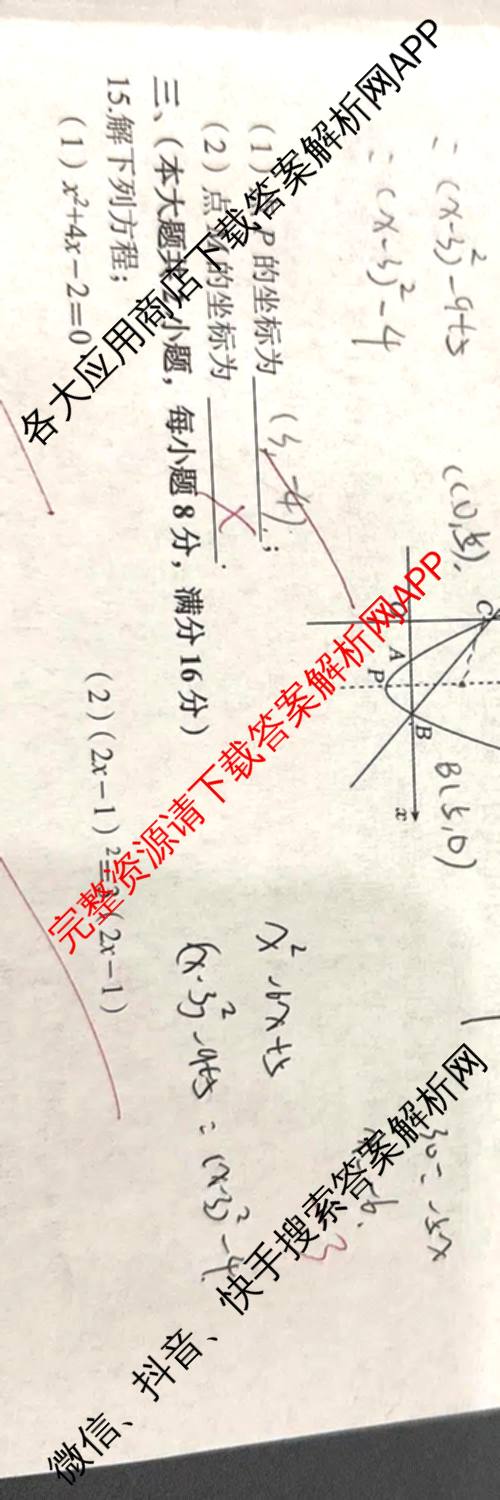 = (x-3)²-9+5
= (x-3)²-4
C(0,5),
B(5,0)
C
A
P
B
x
(1) P的坐标为 (3,-4) ;
(2)点M的坐标为 .
三、(本大题共2小题，每小题8分，满分16分)
15.解下列方程；
(1) x²+4x-2=0
(2)(2x-1)²= (2x-1)
x²-6x+5
(x-3)²-9+5 = (x-3)²-4
各大应用商店下载答案解析网APP
完整资源请下载答案解析网APP
微信、抖音、快手搜索答案解析网